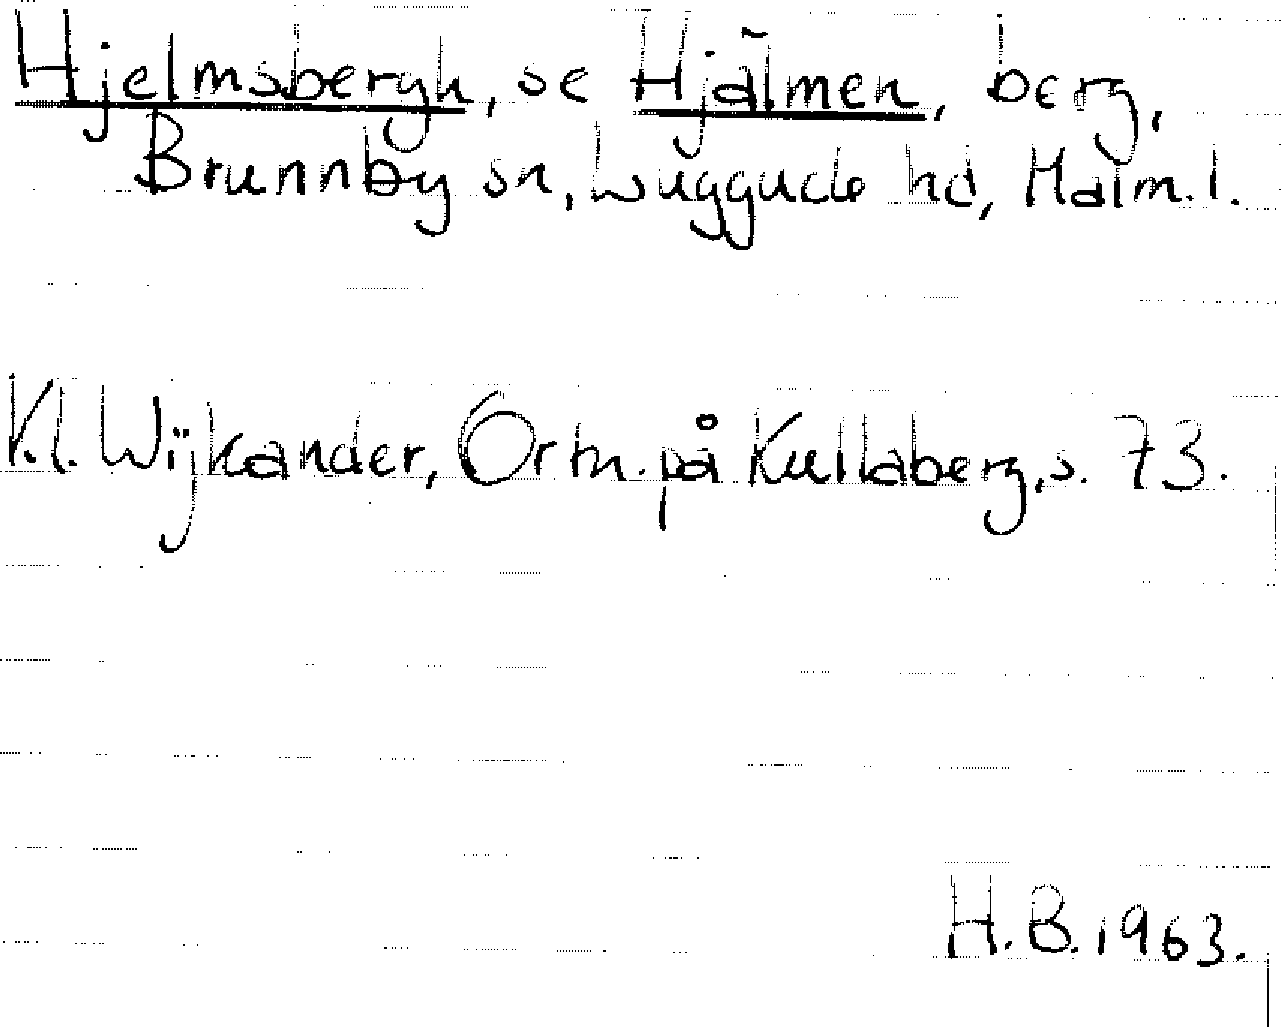 Hjelmsbergh, se Hjälmen, berg,
Brunnby sn, Luggude hd, Malm. l.
K.l. Wijkander, Ortn. på Kullaberg, s. 73.
H.B. 1963.